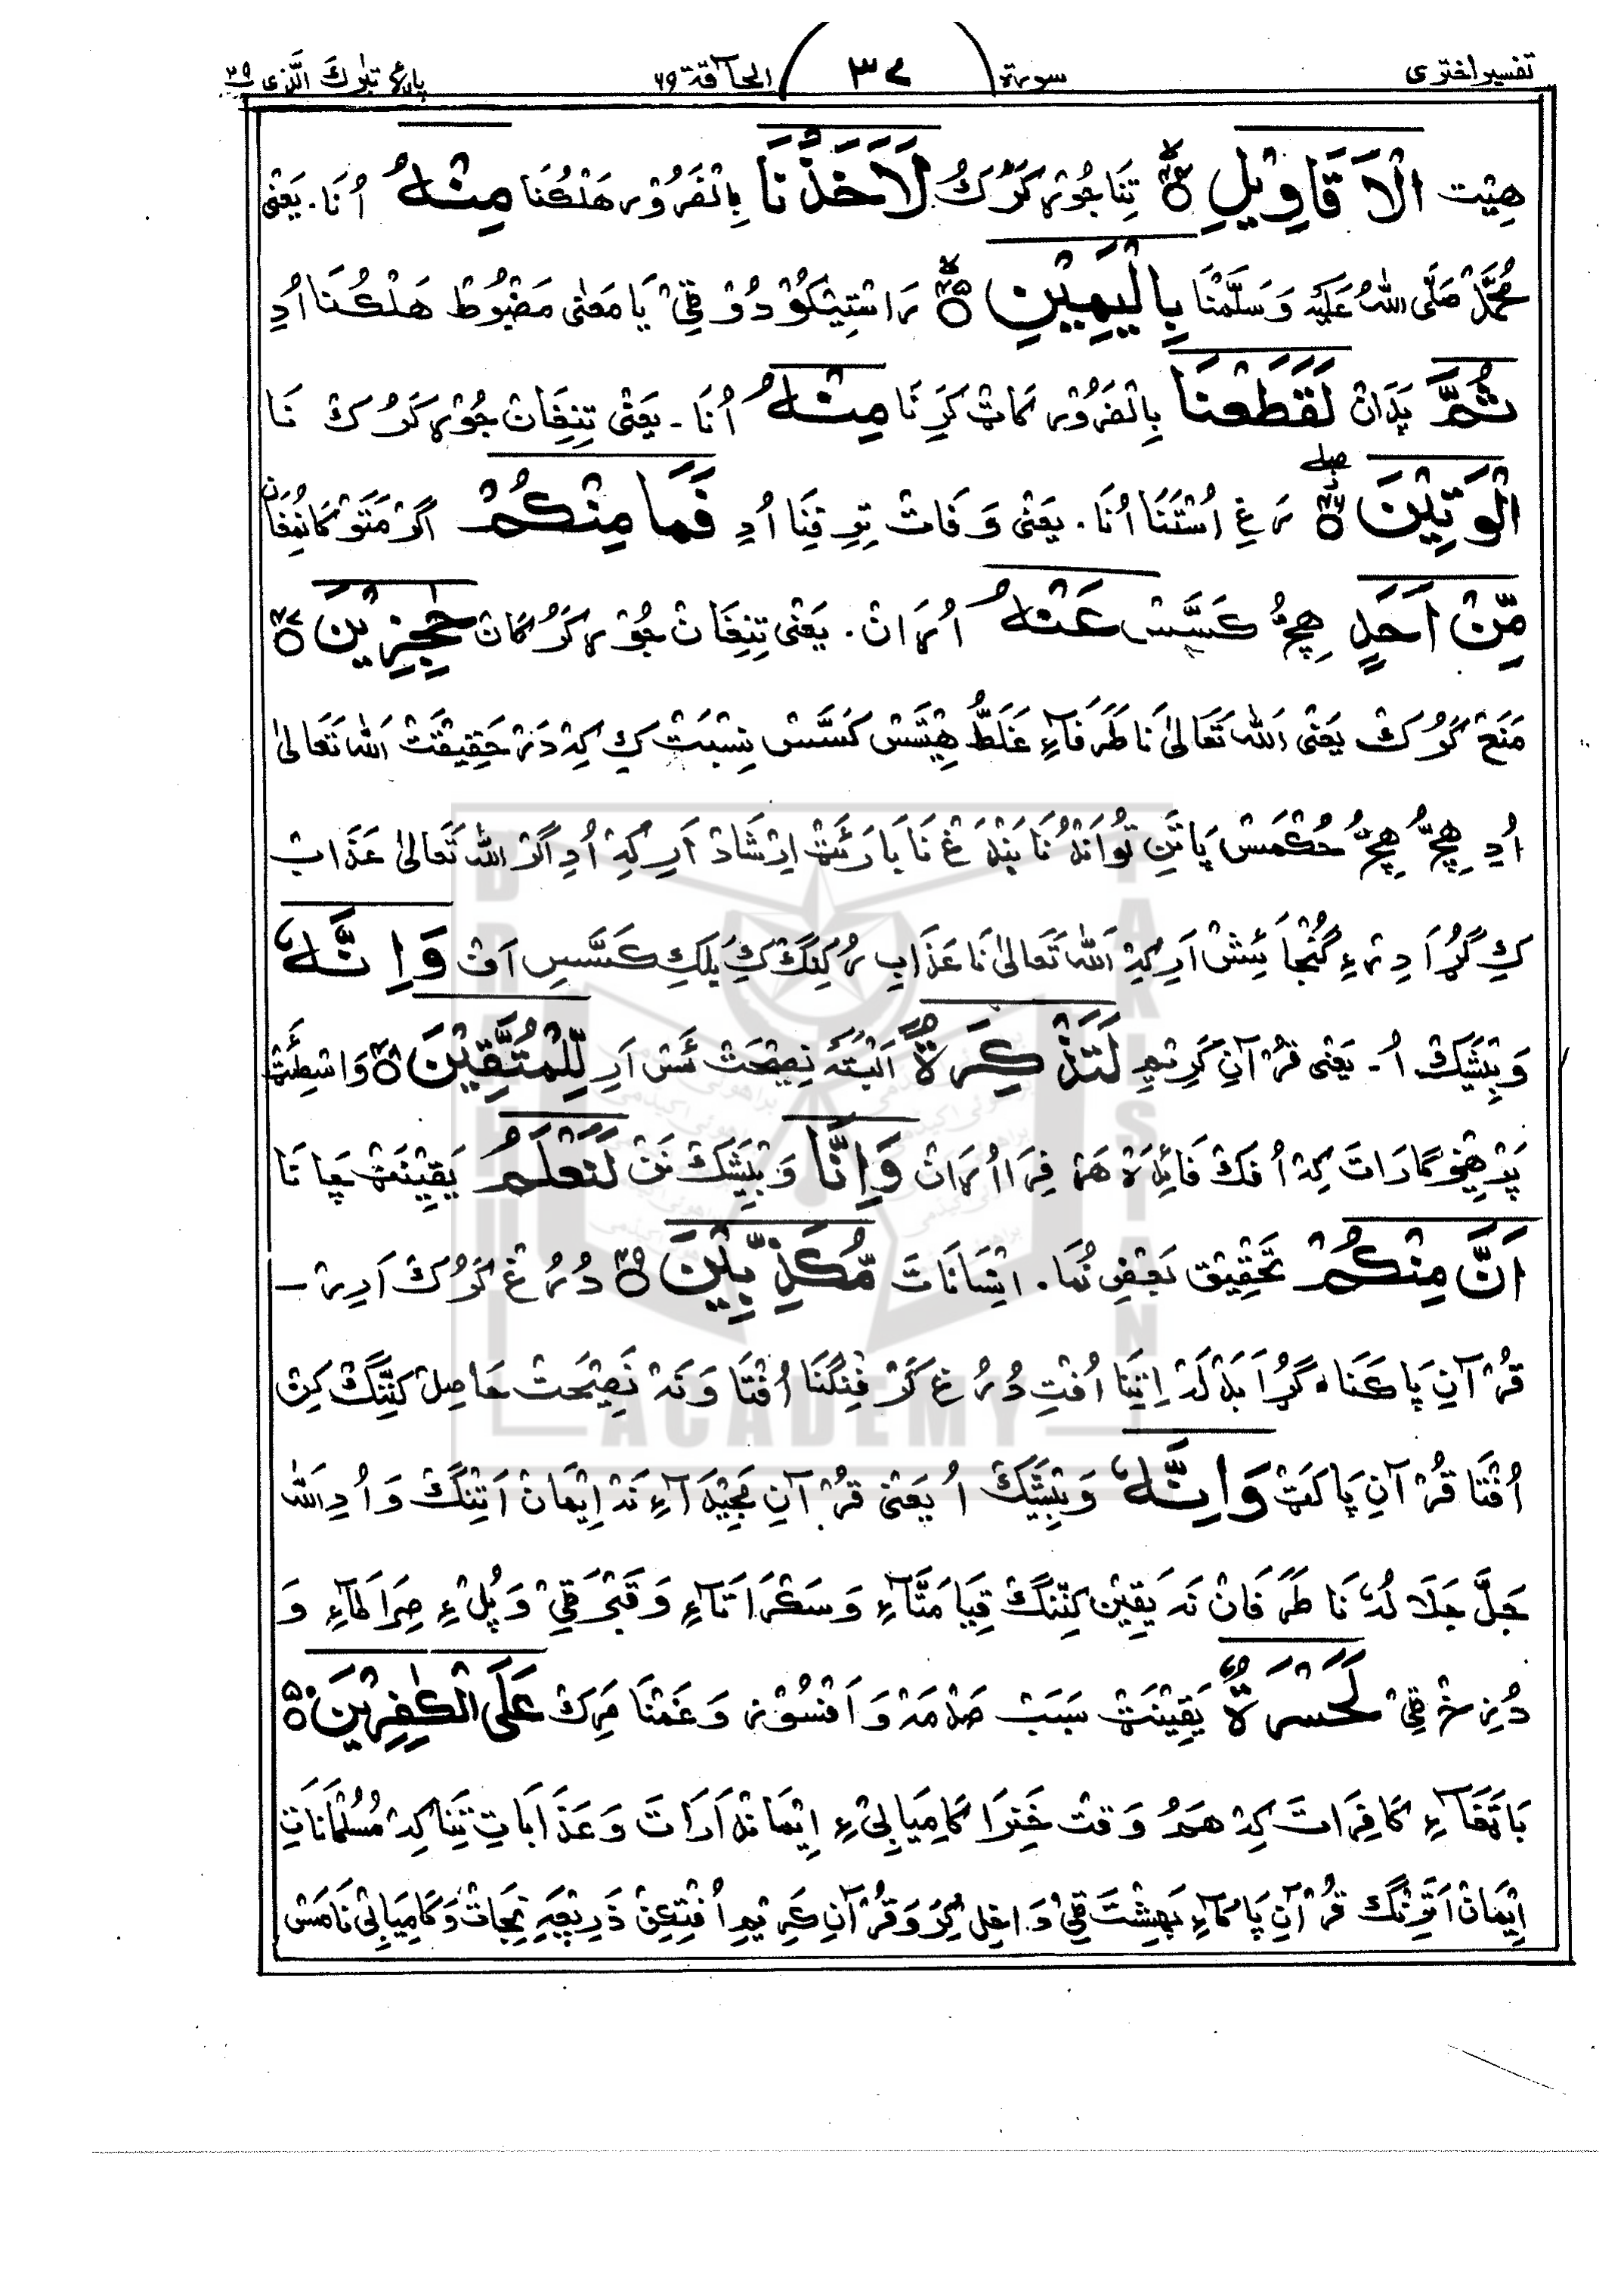 تفسیر اختری سورة ۳۷ الحآقة ۶۹ پارہ تبٰرك الّذی ۲۹
هِیْت الْاَقَاوِیْلِ ۴۴ تِنَا جُوْړ کَرُک لَاَخَذْنَا بِالْضَرُوْر هَلْکُنَا مِنْهُ اُنَا۔ یَعْنٰی
مُحَمَّدْ صَلَّی اللّٰهُ عَلَیْهِ وَسَلَّمْنَا بِالْیَمِیْنِ ۴۵ رَاسْتِیْکُوْ دُوْ ٹِیْ یَا مَعْنٰی مَضْبُوْط هَلْکُنَا اُدِ
ثُمَّ پَدَانْ لَقَطَعْنَا بِالْضَرُوْر کَاٹ کَرِنَا مِنْهُ اُنَا۔ یَعْنٰی تِنِغَانْ جُوْړ کَرُکْ نَا
الْوَتِیْنَ ۴۶ رَغِ اُسْتَنَا اُنَا۔ یَعْنٰی وَفَاتْ تِرِفِنَا اُدِ فَمَا مِنْكُمْ اَگَرْ مَتَوْکَا نُمْغَان
مِّنْ اَحَدٍ هِچُّ کَسَّسْ عَنْهُ اُرَانْ۔ یَعْنٰی تِنِغَانْ جُوْړ کَرُکَانْ حٰجِزِیْنَ ۴۷
مَنَعْ کَرُکْ یَعْنٰی اَللّٰه تَعَالٰی نَا طَرَفَآءِ غَلَطُّ هِیْتَسْ کَسَّسْ نِسْبَتْ کِ کِهْ دَرْ حَقِیْقَتْ اَللّٰه تَعَالٰی
اُدِ هِچُّ هِچُّ حُکْمَسْ پَاتَنِ تُو اَنْدُنَا بَنْدَغْ نَا بَارَئَٹْ اِرْشَادْ اَرِ کِهْ اُدِ اَگَرْ اللّٰه تَعَالٰی عَذَابْ
کِ گُړَا دِرْءِ گُنْجَائِشْ اَرِ کِهْ اَللّٰه تَعَالٰی نَا عَذَابِ رُکِنِگْ کِ بَلِکِ کَسَّسِ اَفْ وَاِنَّهٗ
وَبِیْشَکْ اُ۔ یَعْنٰی قُرْآنِ کَرِیْمِ لَتَذْكِرَةٌ اَلْبَتَّهٗ نَصِیْحَتْ ئَسْ اَرِ لِّلْمُتَّقِیْنَ ۴۸ وَاسْطِئَٹْ
پَرْهِیْزْگَارَاتَ کِهْ اُفْکْ فَائِدَهْ هَرْفِرَا اُرَانْ وَاِنَّا وَبِیْشَکْ نَنْ لَنَعْلَمُ یَقِیْنَٹْ چَانَا
اَنَّ مِنْكُمْ تَحْقِیْق بَعْضِ نُمَا۔ اِنْسَانَاتَ مُّكَذِّبِیْنَ ۴۹ دُرُغْ کَرُکْ اَدِرْ۔
قُرْآنِ پَاکَنَا۔ گُړَا بَدْلَهْ اِنِنَا اُفْتِ دُرُغْ کَرْفِنْگْنَا اُفْتَا وَنَهْ نَصِیْحَتْ حَاصِلْ کَنِّنْگْ کِنْ
اُفْتَا قُرْآنِ پَاکَٹْ وَاِنَّهٗ وَبِیْشَکْ اُ یَعْنٰی قُرْآنِ مَجِیْدَآءِ نَهْ اِیْمَانْ اَتِنْگْ وَ اُدِ اَللّٰه
جَلَّ جَلَالُهٗ نَا طَرَفَانْ نَه یَقِیْن کَنِّنْگْ قِیَامَتَآءِ وَسَکْرَاتَآءِ وَقَبْرْ ٹِیْ وَپُلْءِ صِرَاطَآءِ وَ
دُنِزَخْ ٹِیْ لَحَسْرَةٌ یَقِیْنَٹْ سَبَبْ صَدْمَهْ وَاَفْسُوْز وَغَمْنَا مَرِکْ عَلَی الْكٰفِرِیْنَ ۵۰
بَاتَغَآءِ کَافِرَاتَ کِهْ هَمُ وَقْتْ خَنِرَا کَامِیَابِیْءِ اِیْمَانْدَارَاتَ وَعَذَابَاتِ تِنَا کِهْ مُسُلْمَانَاتِ
اِیْمَانْ اَتِرِنْگْ قُرْآنِ پَاکَآءِ بَهِشْتَ ٹِیْ دَاخِل کِرَ وَقُرْآنِ کَرِیْمِ اُفْتِکِنْ ذَرِیْعَهِ نِجَاتْ وَکَامِیَابِیْ نَا مَسْ